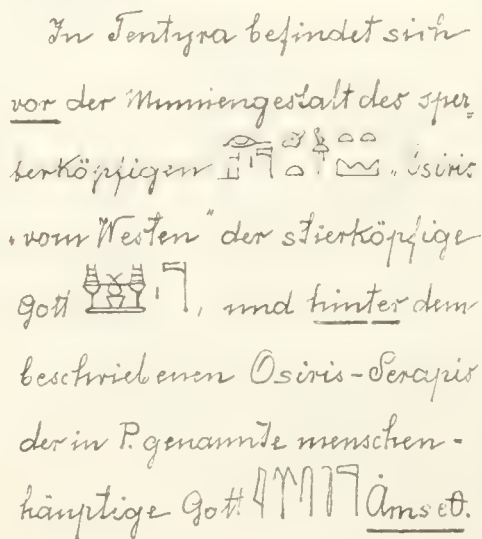 In Tentyra befindet sich
vor der Mumiengestalt des sper=
berköpfigen „Osiris
„vom Westen" der stierköpfige
Gott , und hinter dem
beschriebenen Osiris-Serapis
der in P. genannte menschen-
häuptige Gott Amset.